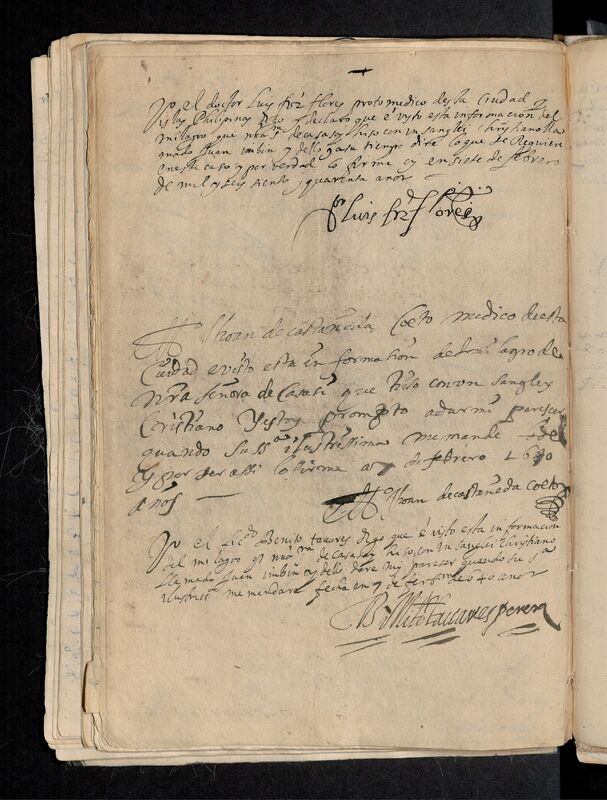 Yo el doctor Luis frz flores protomedico desta Ciudad y
yslas Philipinas digo y declaro que é visto esta informacion del
milagro que nra sra de casasy hiso con un sangley christiano lla
mado Juan imbin y dello y a su tiempo dire lo que se Requiere
en este caso y por verdad lo firme en siete de febrero
de mil y seys siento y quarenta años
Dor Luis frz flores
Jhoan de castañeda Coeto medico de esta
Ciudad e visto esta ynformation del milagro de
nra señora de Casasi que hiso con un sangley
Cristiano Y estoy prompto a dar mi pareser
quando su ssa ilustrissima me mande
y por ser assi lo firme a 7 de febrero 1640
años
Jhoan de castañeda coeto
Yo el Licdo Benito tavares digo que é visto esta informacion
del milagro q nra sra de Casasay hiso con un sangley christiano
llamado Juan imbin y dello dare mi pareser quando su sa
ilustrisa me mandare fecha en 7 de febro de 40 años
Benito tavares perera